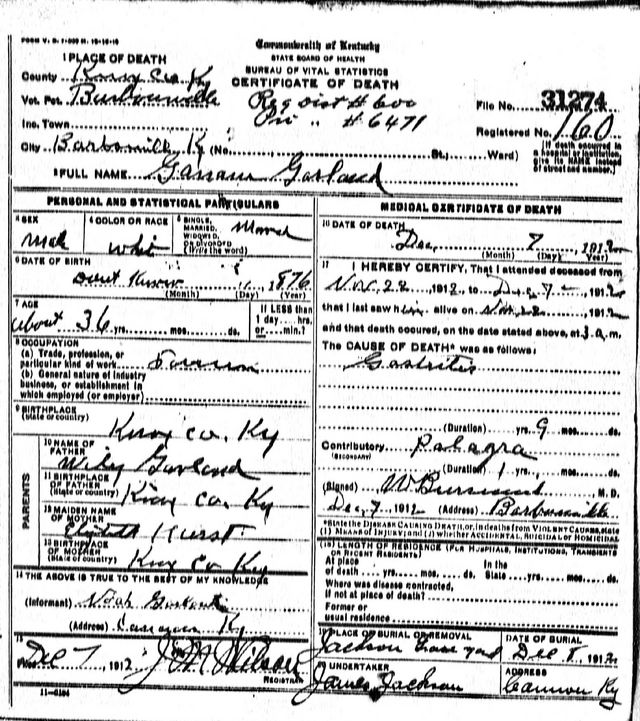 FORM V. S. 1-
Commonwealth of Kentucky
STATE BOARD OF HEALTH
BUREAU OF VITAL STATISTICS
CERTIFICATE OF DEATH
1 PLACE OF DEATH
County Knox Co Ky
Vot. Pct.
Reg Dist # 600
Pri " # 6471
File No. 31274
Registered No. 160
Inc. Town
City Barbourville Ky (No. St.; Ward)
[If death occurred in a hospital or institution, give its NAME instead of street and number.]
2 FULL NAME Garland
PERSONAL AND STATISTICAL PARTICULARS
3 SEX
4 COLOR OR RACE
5 SINGLE, MARRIED, WIDOWED, OR DIVORCED (Write the word)
White
6 DATE OF BIRTH
1876
(Month) (Day) (Year)
7 AGE
about 36 yrs. mos. ds.
If LESS than 1 day....hrs. or....min.?
8 OCCUPATION
(a) Trade, profession, or particular kind of work
(b) General nature of industry business, or establishment in which employed (or employer)
9 BIRTHPLACE
(State or country)
Knox Co. Ky
PARENTS
10 NAME OF FATHER
Garland
11 BIRTHPLACE OF FATHER
(State or country)
Knox Co. Ky
12 MAIDEN NAME OF MOTHER
Hurst
13 BIRTHPLACE OF MOTHER
(State or country)
Knox Co Ky
14 THE ABOVE IS TRUE TO THE BEST OF MY KNOWLEDGE
(Informant) Noah
(Address) Cannon Ky
15
Dec 7, 1912 J M Wilson
REGISTRAR
MEDICAL CERTIFICATE OF DEATH
16 DATE OF DEATH
Dec, 7, 1912
(Month) (Day) (Year)
17 I HEREBY CERTIFY, That I attended deceased from
Nov. 22 1912 to Dec 7 1912
that I last saw him alive on Nov. 22 1912
and that death occured, on the date stated above, at 3 a.m.
The CAUSE OF DEATH* was as follows:
Gastritis
(Duration) yrs. 9 mos. ds.
Contributory Palagra
(SECONDARY)
(Duration) 1 mos. ds.
(Signed) M. D.
Dec, 7 1912 (Address) Barbourville
*State the DISEASE CAUSING DEATH, or, in deaths from VIOLENT CAUSES, state (1) MEANS OF INJURY; and (2) whether ACCIDENTAL, SUICIDAL or HOMICIDAL
18 LENGTH OF RESIDENCE (FOR HOSPITALS, INSTITUTIONS, TRANSIENTS OR RECENT RESIDENTS)
At place of death....yrs....mos....ds. In the State....yrs....mos....ds.
Where was disease contracted, if not at place of death?
Former or usual residence
19 PLACE OF BURIAL OR REMOVAL
Jackson Grave yard
DATE OF BURIAL
Dec 8, 1912
20 UNDERTAKER
James Jackson
ADDRESS
Cannon Ky
11-5184